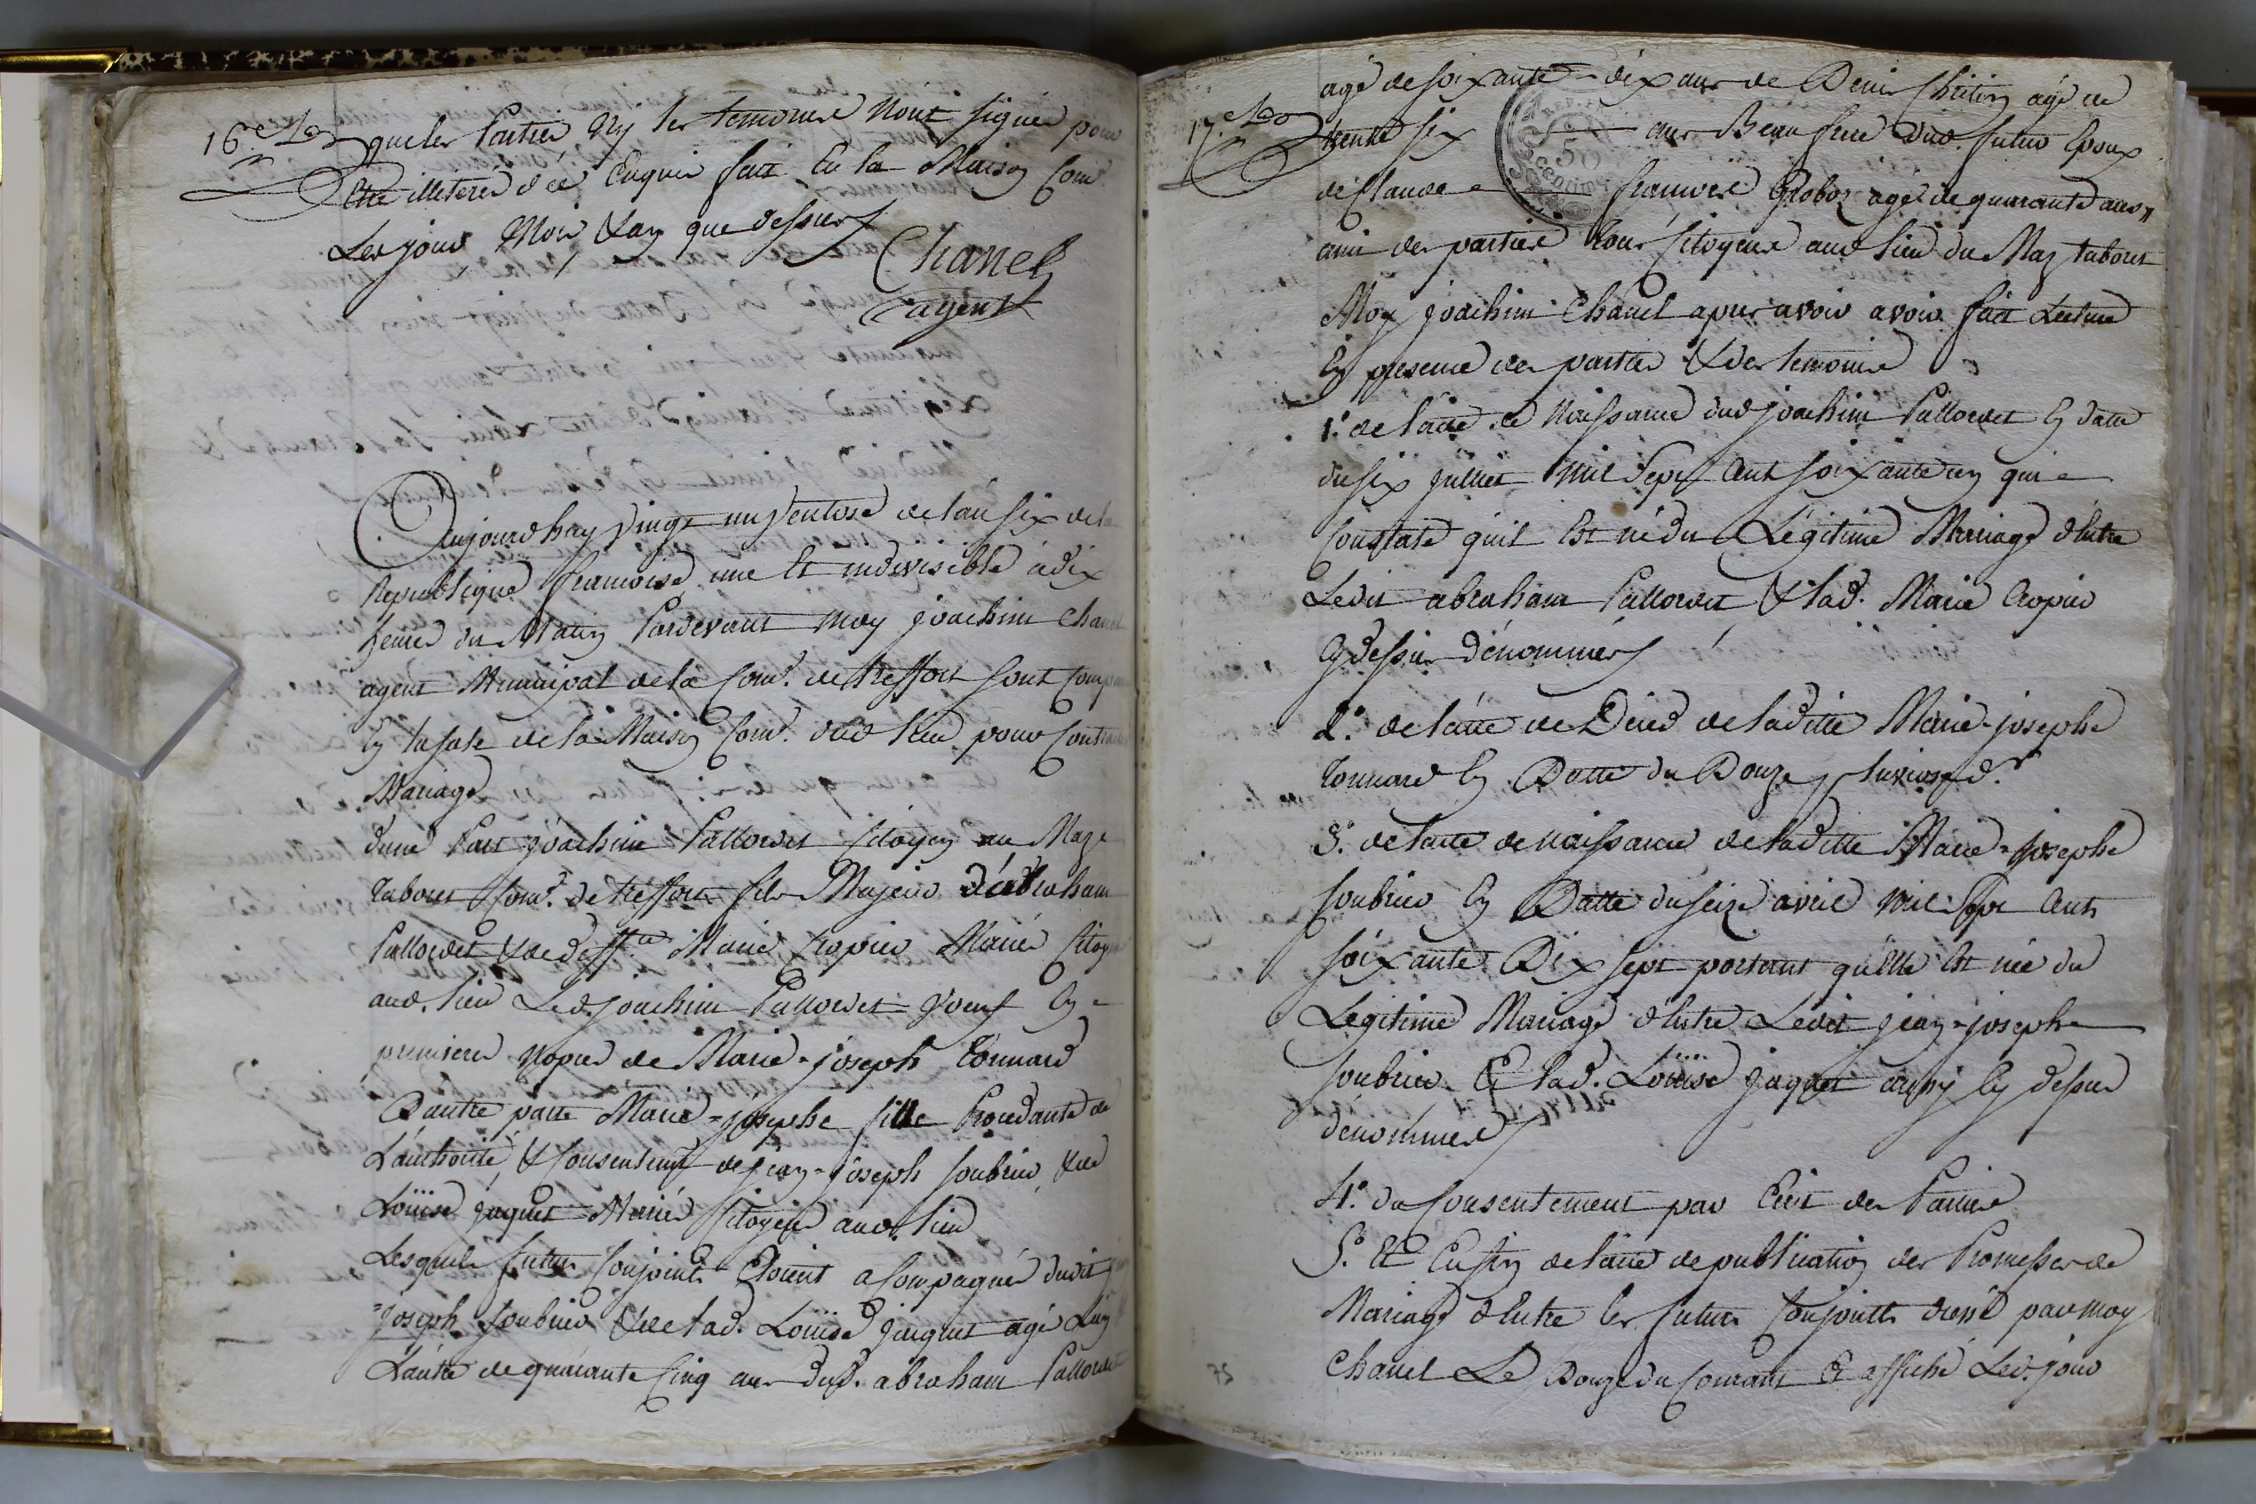 16e
que les Parties Ny les temoins N'ont signés pour
Etre illiterés de ce Enquis fait En la Maison Com.
Les jour Mois & an que dessus
Chanel
agent
Aujourdhuy vingt un Ventose de l'an six de la
Republique francoise une Et indivisible à dix
heures du Matin Pardevant moy joachim Chanel
agent Municipal de la Com. de treffort sont
En la sale de la Maison Com. dud lieu pour
Mariage
d'une Part joachim Pallordet Citoyen au Maz
taboret Com. de treffort fils Majeur d'abraham
Pallordet & de Marie Cropier Mariés
aud. lieu Led. joachim Pallordet Veuf En
premieres Nopces de Marie=joseph tonnard
D'autre parte Marie=josephe fille Procedante de
L'authorité & Consentemt de jean=joseph Soubrier & de
Louise jaquet Mariés Citoyens aud. lieu
Lesquels futurs Conjoints Etoient acompagnés dudit
=joseph Soubrier & de lad. Louise jaquet agé L'un
L'autre de quarante Cinq ans dud. abraham Pallordet
17e
agé de soixante=dix ans de Denis Chiltin agé de
trente six ans Beau frere dud. futur Epoux
de Claude francois Grobos agé de quarante ans
ami des parties tous Citoyens aud lieu du Maz taboret
Moy joachim Chanel apres avoir avoir fait Lecture
En presence des parties & des temoins
1° de l'acte de Naissance dud joachim Pallordet En datte
du six juillet mil sept Cent soixante un qui
Constate quil Est né du Légitime Mariage d'Entre
Ledit abraham Pallordet & lad. Marie Cropier
Cy dessus dénommés
2° de l'acte de Décés de laditte Marie=josephe
tonnard En Datte du Douze
3° de l'acte de Naissance de laditte Marie=josephe
Soubrier En Datte du seize avril mil sept Cent
soixante Dix sept portant qu'Elle Est née du
Légitime Mariage d'Entre Ledit jean=joseph
Soubrier & lad. Louise jaquet aussy Cy dessus
dénommés
4° du Consentement par Ecrit des Parties
5° Et Enfin de l'acte de publication des Promesses de
Mariage d'Entre les futurs Conjoints dressé par moy
Chanel Le Douze du Courant & affiché Led. jour